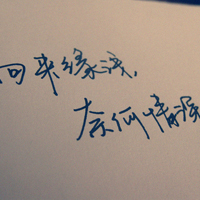 回来缘浅,
奈何情深